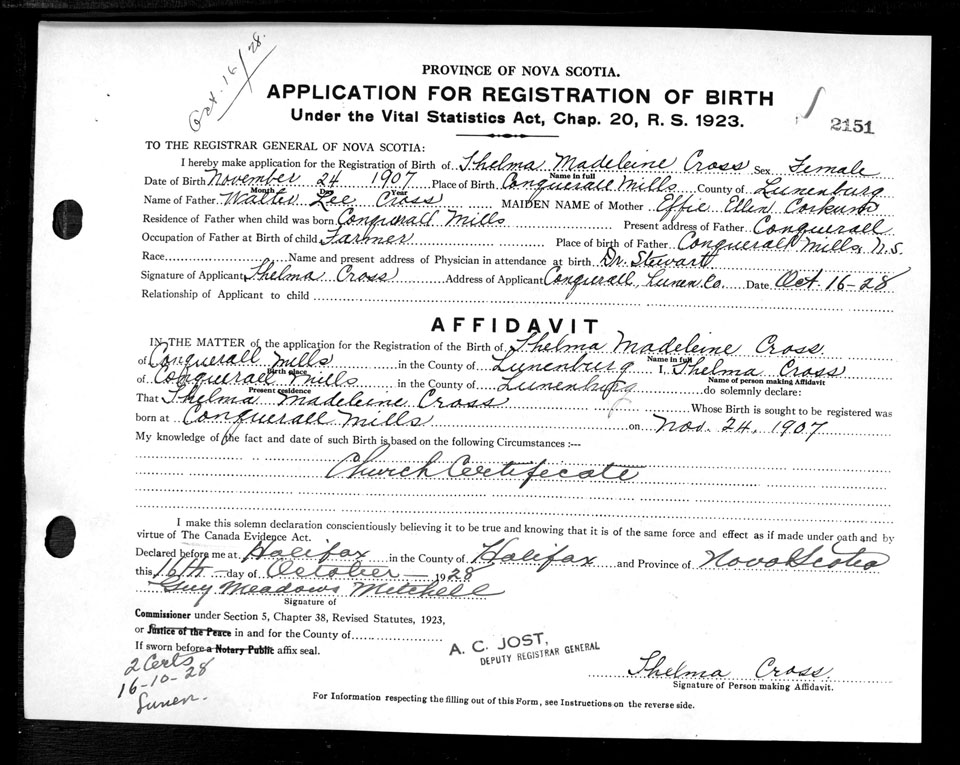 Oct. 16/28.
PROVINCE OF NOVA SCOTIA.
APPLICATION FOR REGISTRATION OF BIRTH
Under the Vital Statistics Act, Chap. 20, R. S. 1923.
2151
TO THE REGISTRAR GENERAL OF NOVA SCOTIA:
I hereby make application for the Registration of Birth of Thelma Madeleine Cross Sex Female
Name in full
Date of Birth November 24 1907 Place of Birth Conquerall Mills County of Lunenburg
Month Day Year
Name of Father Walter Lee Cross MAIDEN NAME of Mother Effie Ellen
Residence of Father when child was born Conquerall Mills Present address of Father Conquerall
Occupation of Father at Birth of child Farmer Place of birth of Father Conquerall Mills, N.S.
Race Name and present address of Physician in attendance at birth Dr. Stewart
Signature of Applicant Thelma Cross Address of Applicant Conquerall, Lunen. Co. Date Oct. 16-28
Relationship of Applicant to child
AFFIDAVIT
IN THE MATTER of the application for the Registration of the Birth of Thelma Madeleine Cross
Name in full
of Conquerall Mills in the County of Lunenburg I, Thelma Cross
Birth place Name of person making Affidavit
of Conquerall Mills in the County of Lunenburg do solemnly declare:
Present residence
That Thelma Madeleine Cross Whose Birth is sought to be registered was
born at Conquerall Mills on Nov. 24, 1907
My knowledge of the fact and date of such Birth is based on the following Circumstances :—
Church Certificate
I make this solemn declaration conscientiously believing it to be true and knowing that it is of the same force and effect as if made under oath and by
virtue of The Canada Evidence Act.
Declared before me at Halifax in the County of Halifax and Province of Nova Scotia
this 16th day of October 1928
Guy Meadows Mitchell
Signature of
Commissioner under Section 5, Chapter 38, Revised Statutes, 1923,
or Justice of the Peace in and for the County of
If sworn before a Notary Public affix seal.
A. C. JOST,
DEPUTY REGISTRAR GENERAL
2 Certs
16-10-28
Lunen.
Thelma Cross
Signature of Person making Affidavit.
For Information respecting the filling out of this Form, see Instructions on the reverse side.